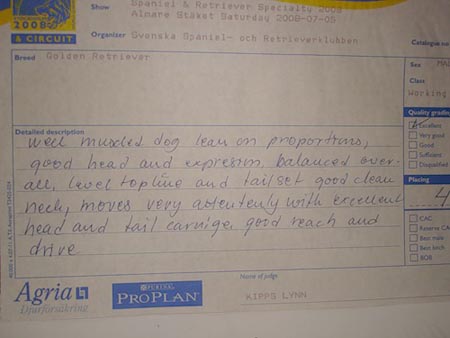 2008
& CIRCUIT
Show Spaniel & Retriever Specialty 2008
Almare Stäket Saturday 2008-07-05
Organizer Svenska Spaniel- och Retrieverklubben
Catalogue no
Breed Golden Retriever
Sex MA
Class
Working
Quality grading
Excellent
Very good
Good
Sufficient
Disqualified
Detailed description
Well muscled dog lean on proportions,
good head and expression, balanced over-
all, level topline and tailset good clean
neck, moves very attentively with excellent
head and tail carriage, good reach and
drive
Placing
4
CAC
Reserve CA
Best male
Best bitch
BOB
Name of judge
KIPPS LYNN
Agria
Djurförsäkring
PURINA
PRO PLAN